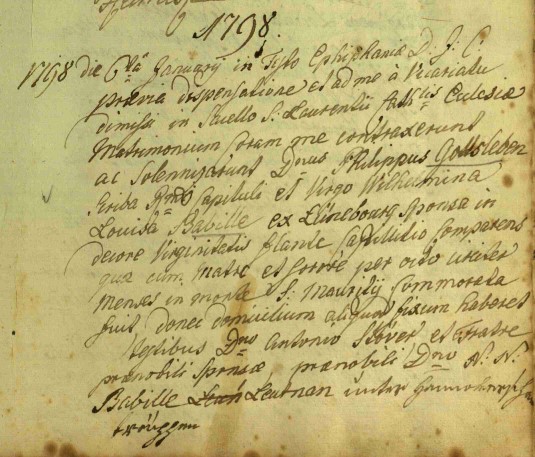 1798.
1798 die 6ta January in Festo Epiphaniae D. J. C.
praevia dispensatione et ad me à Vicariatu
dimissi in Sacello S: Laurentii Ecclesiae
Matrimonium coram me contraxerunt
ac solennizarunt Dnus Philippus Gottsleben
scriba Rmi Capituli et Virgo Wilhelmina
Louisa Babille ex Lünebourg sponsa in
decore Virginitatis stante comparens
quae cum matre et sorore per octo
menses in monte S: Mauritij commorata
fuit, donec domicilium aliquod fixum haberet
testibus Dno Antonio Stöver et fratre
praenobili sponsae, praenobili Dno N. N.
Babille Leutnan unter
trouppen